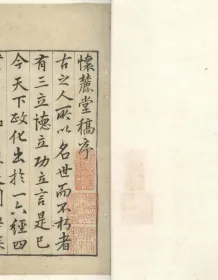 懷麓堂稿序
古之人所以名世而不朽者
有三立德立功立言是已
今天下政化出於一六經四